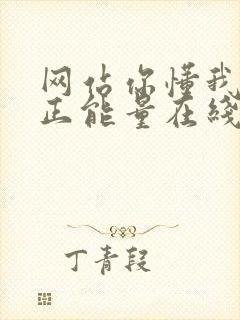 网站你懂我
正能量在线
丁青段